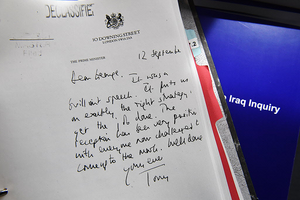 DECLASSIFIED
10 DOWNING STREET
LONDON SW1A 2AA
THE PRIME MINISTER
12 September
Dear George, It was a
brilliant speech. It puts us
on exactly the right strategy
get the job done. The
reception has been very positive
with everyone now challenged to
come up to the mark. Well done
Yours ever
Tony
Iraq Inquiry